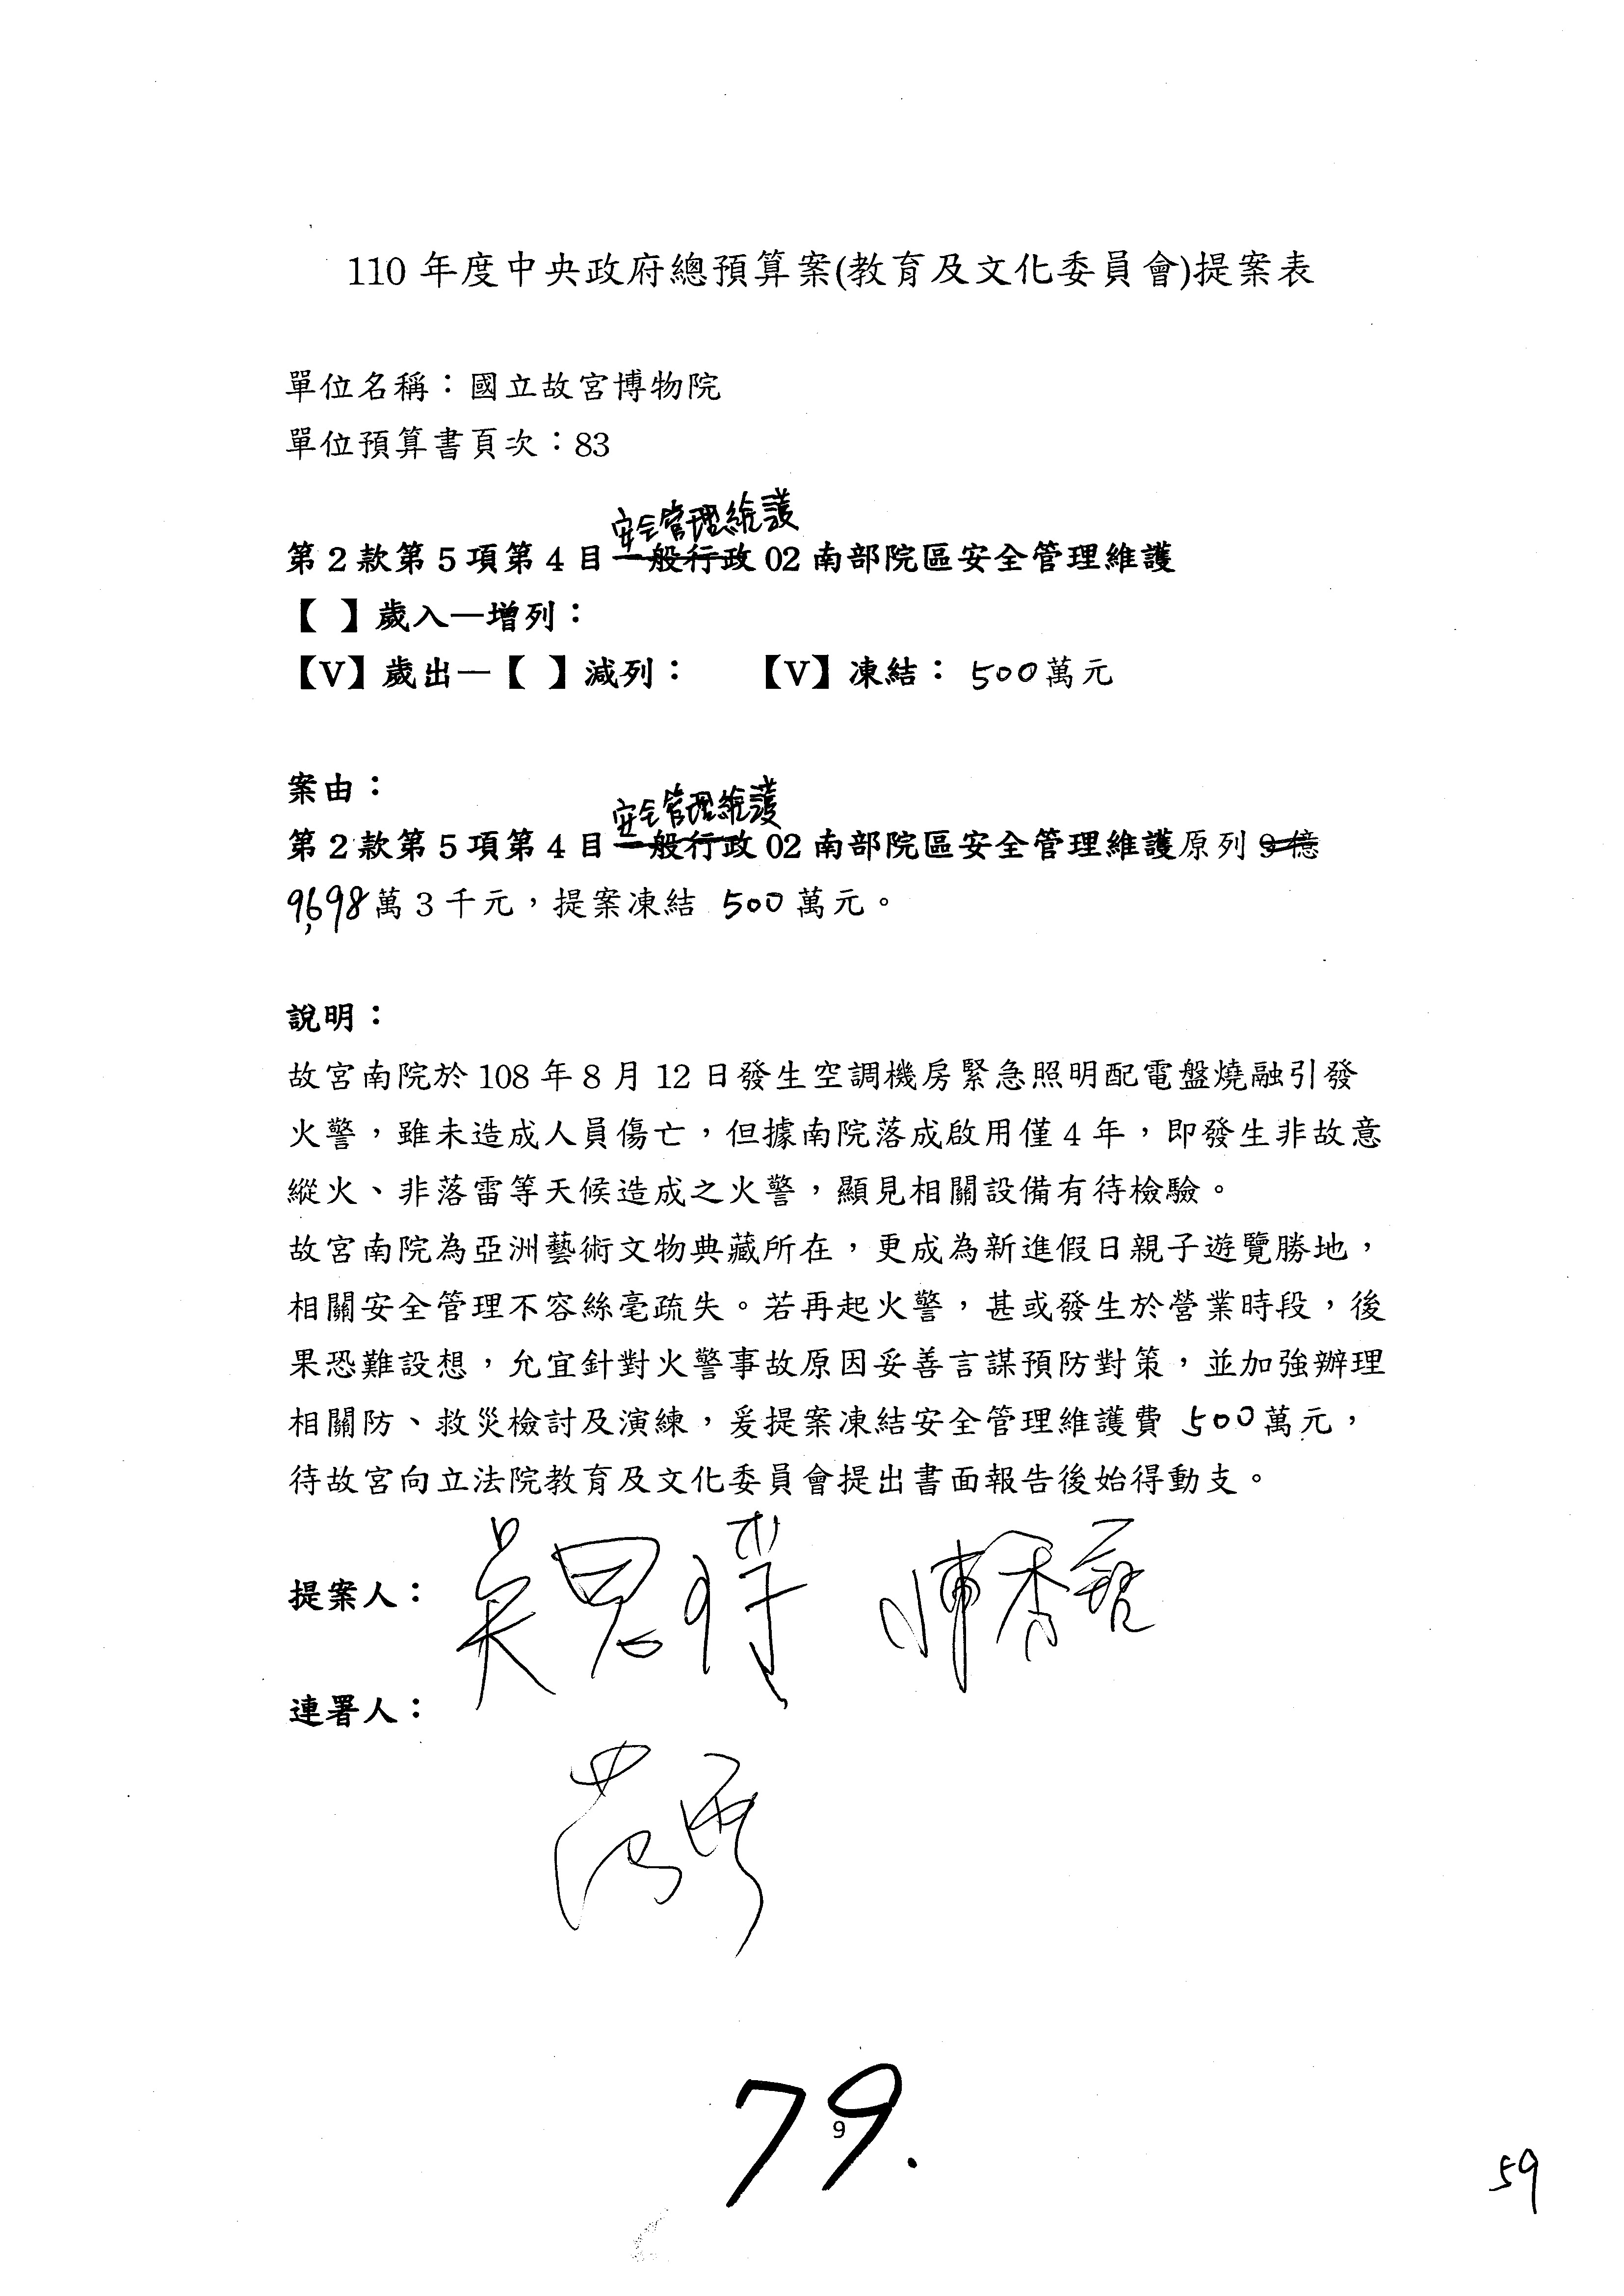 110 年度中央政府總預算案(教育及文化委員會)提案表
單位名稱：國立故宮博物院
單位預算書頁次：83
安全管理維護
第 2 款第 5 項第 4 目一般行政 02 南部院區安全管理維護
【 】歲入—增列：
【V】歲出—【 】減列： 【V】凍結： 500萬元
案由：
安全管理維護
第 2 款第 5 項第 4 目一般行政 02 南部院區安全管理維護原列 9 億
9,698萬 3 千元，提案凍結 500萬元。
說明：
故宮南院於 108 年 8 月 12 日發生空調機房緊急照明配電盤燒融引發
火警，雖未造成人員傷亡，但據南院落成啟用僅 4 年，即發生非故意
縱火、非落雷等天候造成之火警，顯見相關設備有待檢驗。
故宮南院為亞洲藝術文物典藏所在，更成為新進假日親子遊覽勝地，
相關安全管理不容絲毫疏失。若再起火警，甚或發生於營業時段，後
果恐難設想，允宜針對火警事故原因妥善言謀預防對策，並加強辦理
相關防、救災檢討及演練，爰提案凍結安全管理維護費 500萬元，
待故宮向立法院教育及文化委員會提出書面報告後始得動支。
提案人： 吳思 陳秀
連署人：
范雲
79.
9
59